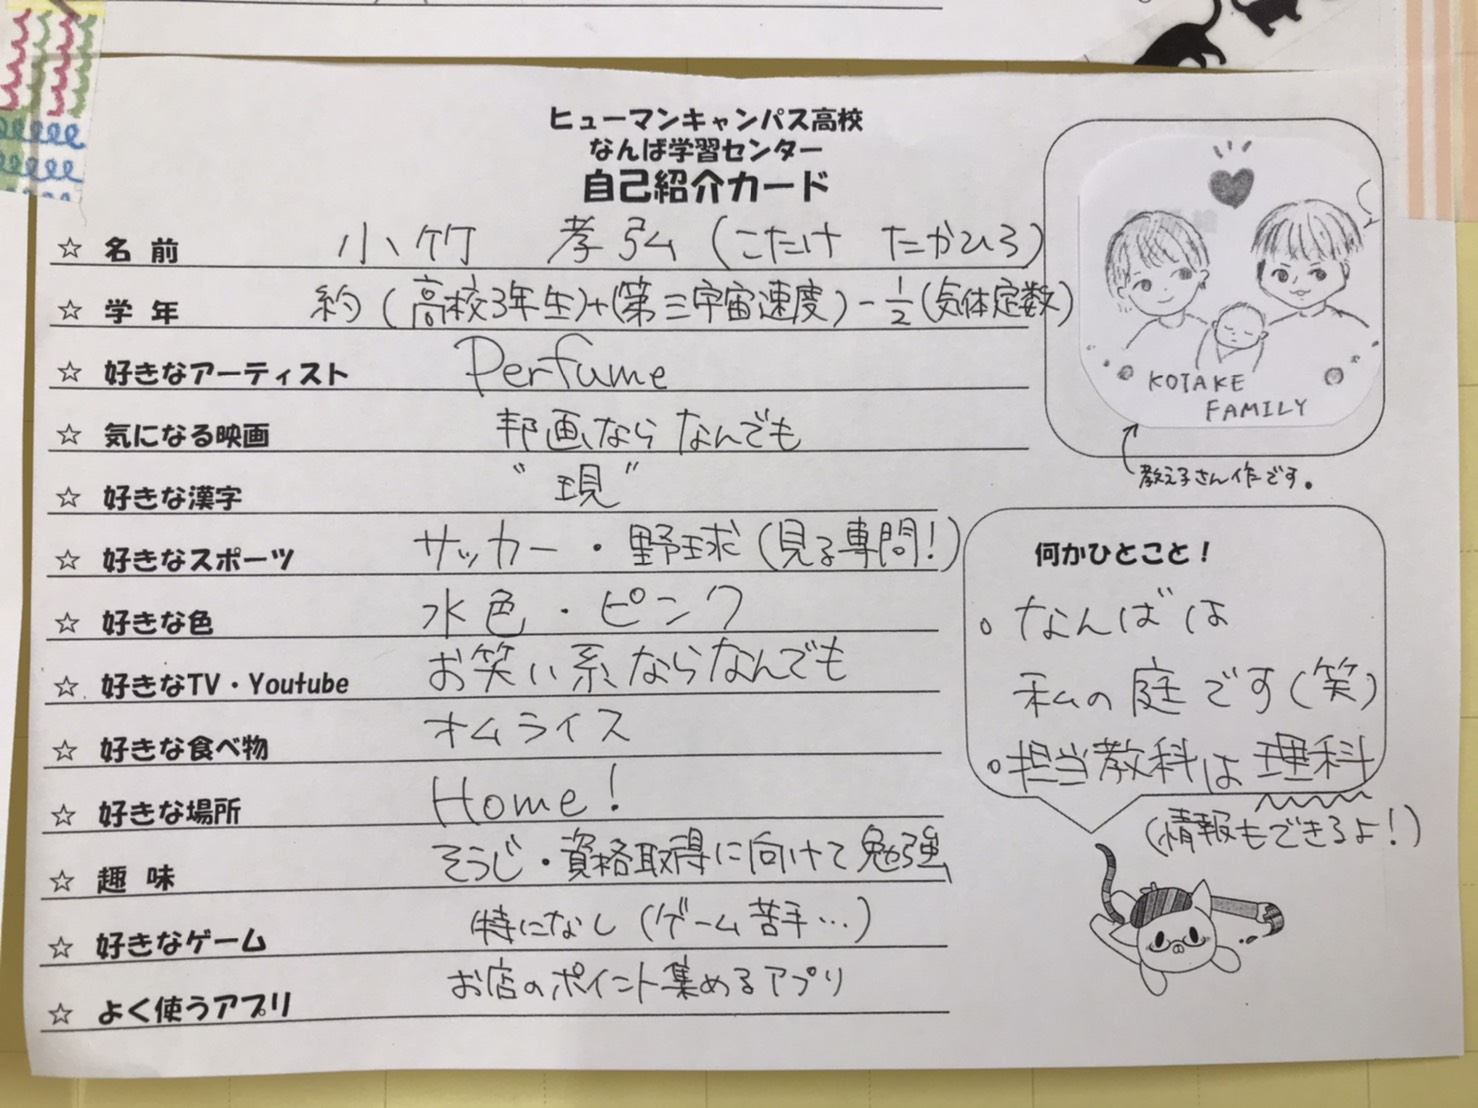 ヒューマンキャンパス高校
なんば学習センター
自己紹介カード
☆ 名前 小竹 孝弘(こたけ たかひろ)
☆ 学年 約(高校3年生)+(第三宇宙速度)-1/2(気体定数)
☆ 好きなアーティスト Perfume
☆ 気になる映画 邦画ならなんでも
☆ 好きな漢字 "現"
☆ 好きなスポーツ サッカー・野球(見る専問!)
☆ 好きな色 水色・ピンク
☆ 好きなTV・Youtube お笑い系ならなんでも
☆ 好きな食べ物 オムライス
☆ 好きな場所 Home!
☆ 趣味 そうじ・資格取得に向けて勉強
☆ 好きなゲーム 特になし(ゲーム苦手…)
☆ よく使うアプリ お店のポイント集めるアプリ
KOTAKE
FAMILY
教え子さん作です。
何かひとこと!
。なんばは
私の庭です(笑)
。担当教科は理科
(情報もできるよ!)